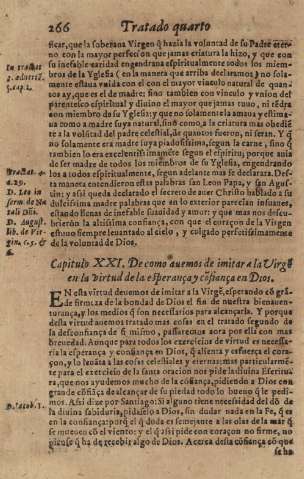 266 Tratado quarto
ficar, que la soberana Virgen q̃ hazia la volũtad de su Padre eter-
no con la mayor perfeciõ que jamas criatura la hizo, y que con
su inefable caridad engendraua espiritualmente todos los miem-
bros de la Yglesia (en la manera que arriba declaramos) no sola-
mente estaua vnida con el con el mayor vinculo natural de quan-
tos ay, que es el de madre; sino tambien con vinculo y vnion del
parentesco espiritual y diuino el mayor que jamas tuuo, ni tẽdra
con miembro de su Yglesia: y que no solamente la amaua y estima-
ua como a madre suya natural, sino como a la criatura mas obediẽ
te a la volũtad del padre celestial, de quantos fueron, ni seran. Y q̃
no solamente era madre suya piadosissima, segun la carne, sino q̃
tambien lo era excelentissimamẽte segun el espiritu; porque auia
de ser madre de todos los miembros de su Yglesia, engendrando
los a todos espiritualmente, segun adelante mas se declarara. Des-
ta manera entendieron estas palabras san Leon Papa, y san Agus-
tin: y assi queda declarado el secreto de auer Christo hablado a su
dulcissima madre palabras que en lo exterior parecian insuaues,
estando llenas de inefable suauidad y amor; y que mas descu-
brieron la altissima confiança, con que el coraçon de la Virgen
estuuo siempre leuantado al cielo, y colgado perfectissimamente
de la voluntad de Dios.
In tractat.
Tractat. 4.
c. 29.
D. Leo in
serm. de Na
D. August.
lib. de Vir-
Capitulo XXI. De como auemos de imitar a la Virgẽ
en la virtud de la esperança y cõfiança en Dios.
EN esta virtud deuemos de imitar a la Virgẽ, esperando cõ grã-
de firmeza de la bondad de Dios el fin de nuestra bienauen-
turança, y los medios q̃ son necessarios para alcançarla. Y porque
desta virtud auemos tratado mas cosas en el tratado segundo de
la desconfiança de si mismo, passaremos aora por ella con mas
breuedad. Aunque para todos los exercicios de virtud es necessa-
ria la esperança y confiança en Dios, q̃ alienta y esfuerça el cora-
çon, y lo leuãta a las cosas celestiales y eternas: mas particularmẽ-
te para el exercicio de la santa oracion nos pide la diuina Escritu-
ra, que nos ayudemos mucho de la cõfiança, pidiendo a Dios con
grande cõfiãça de alcançar de su piedad todo lo bueno q̃ le pedi-
mos. Assi dize por Santiago: Si alguno tiene necessidad del dõ de
la diuina sabiduria, pidaselo a Dios, sin dudar nada en la Fe, q̃ es
en la confiança: porq̃ el q̃ duda es semejante a las olas de la mar q̃
se mueuen cõ el viento; y el q̃ assi pide con coraçon no firme, no
piense q̃ ha de recebir algo de Dios. Acerca desta cõfiança cõ que
se ha
D. Iacob. 1.